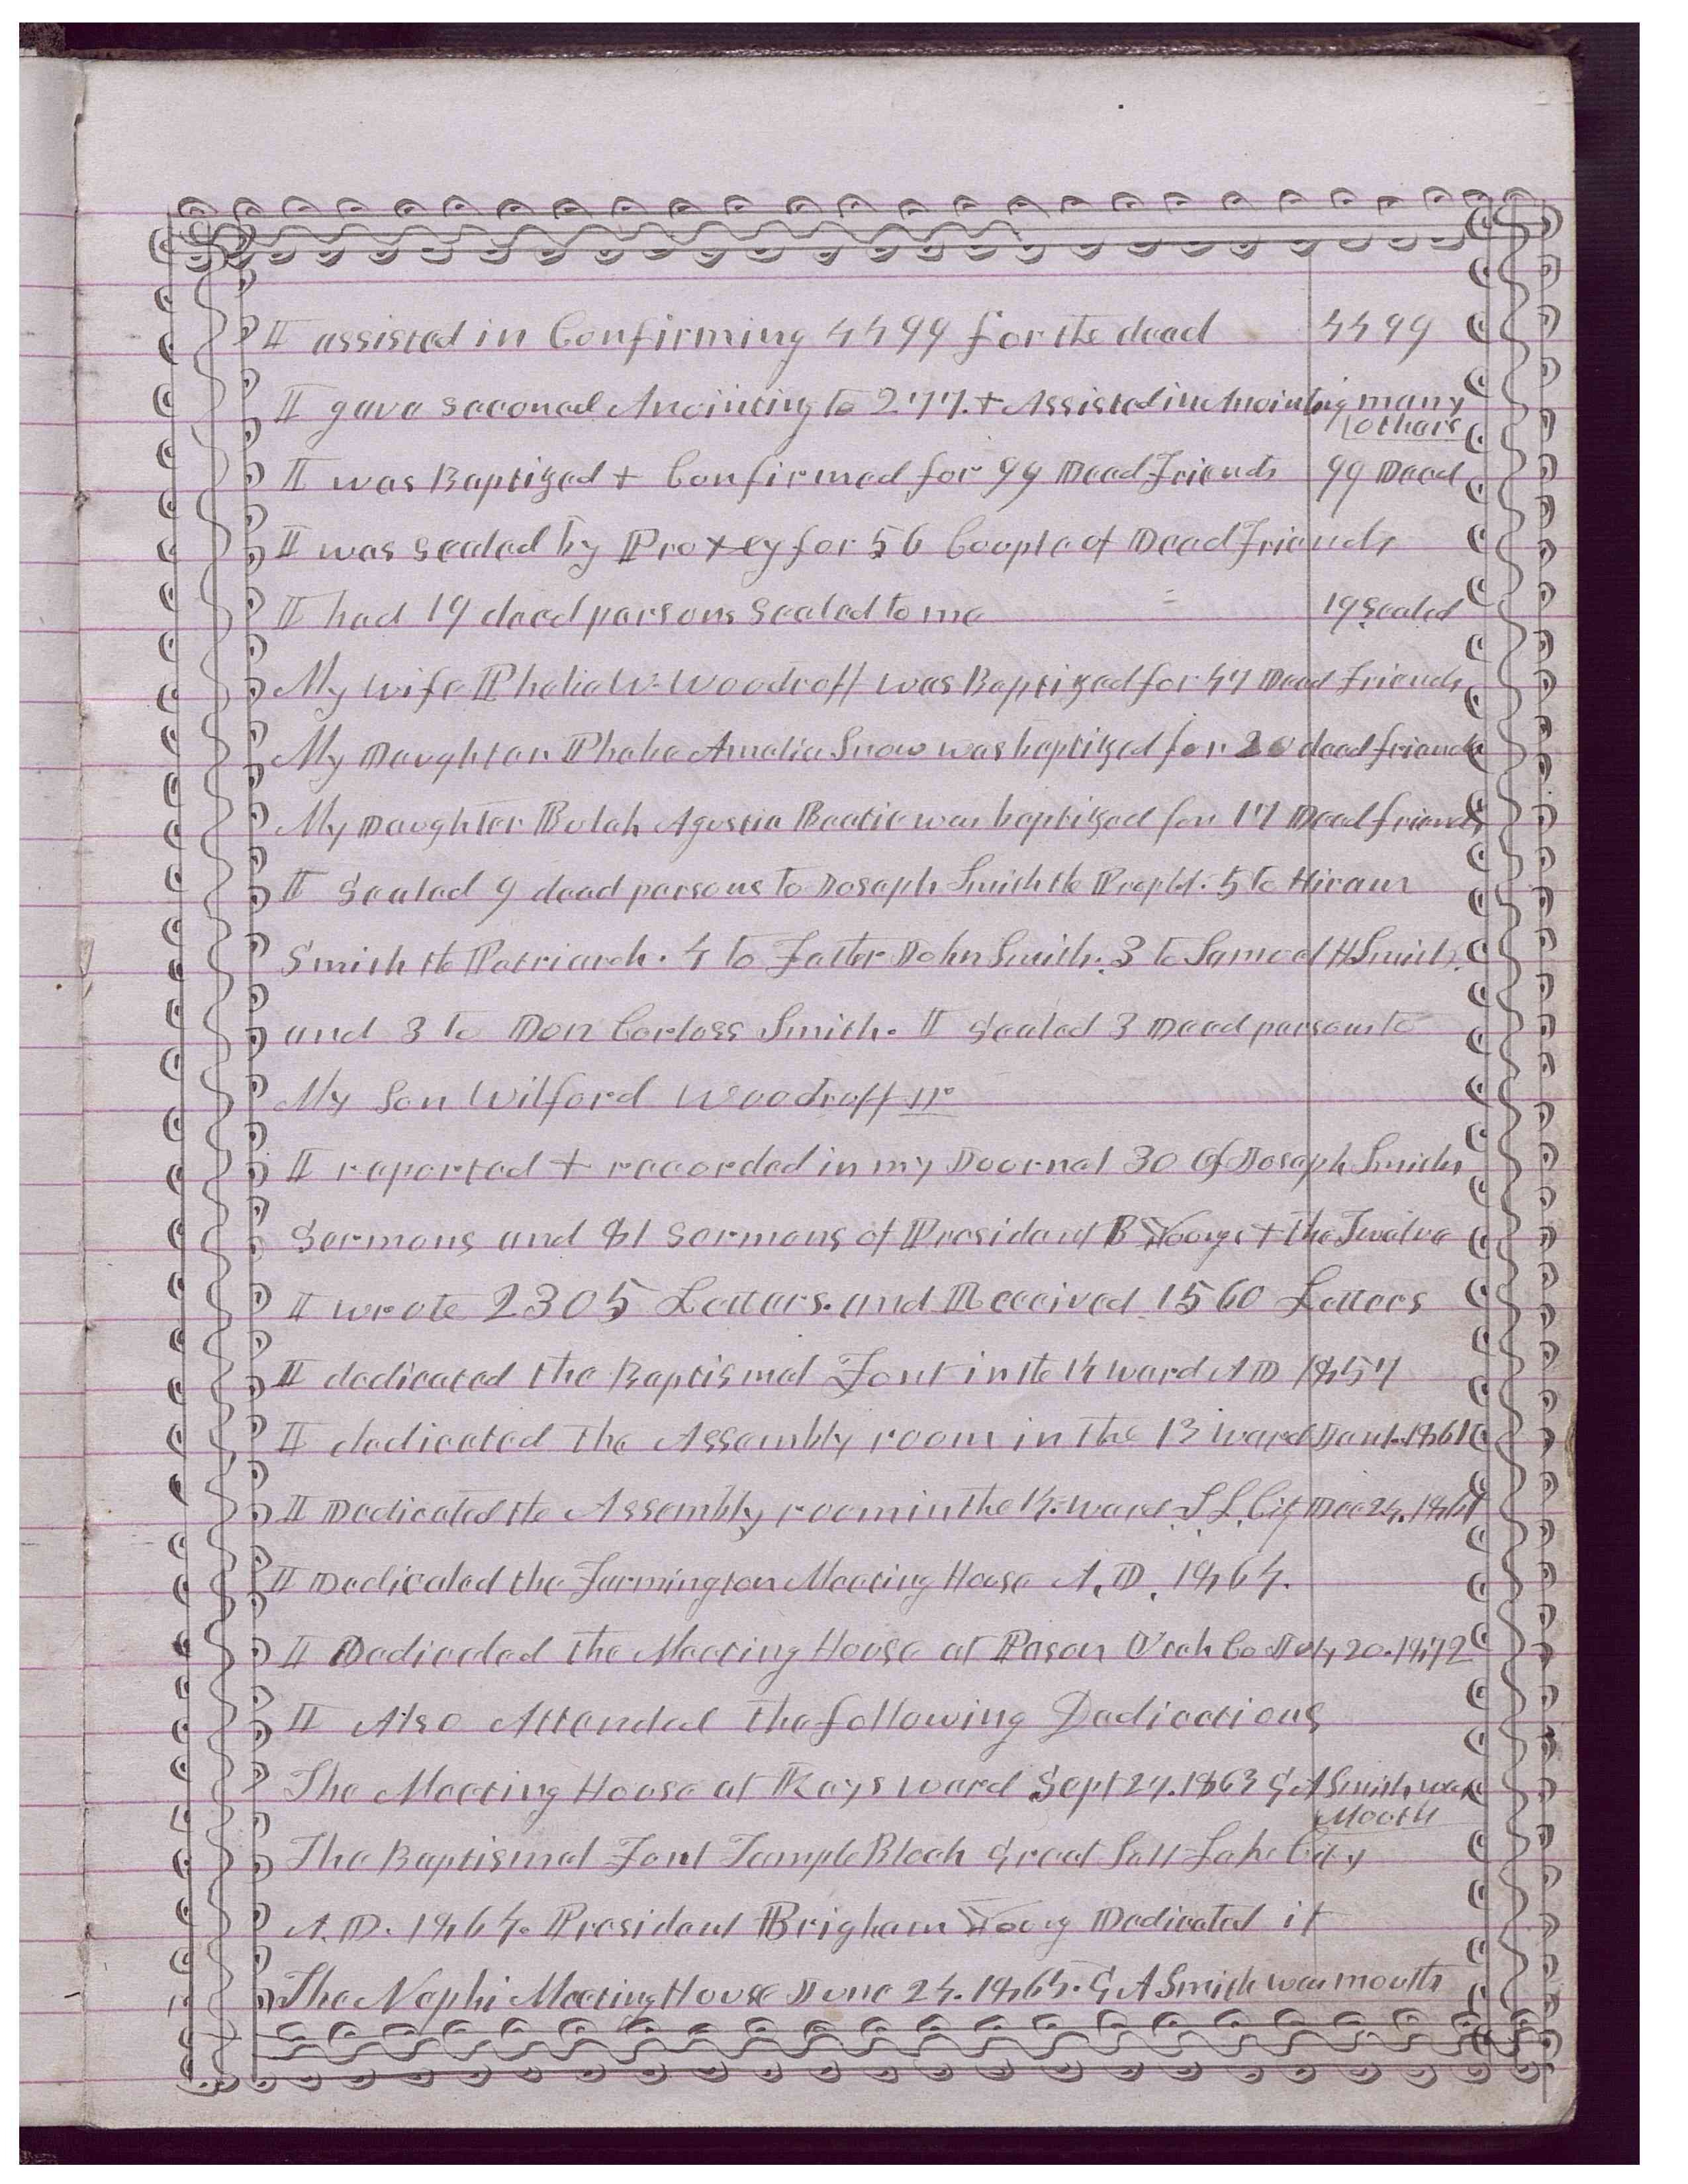 I assisted in Confirming 4499 for the dead 4499
I gave seconed Anointing to 277. + Assisted in Anointing many
others
I was Baptized + Confirmed for 99 Dead Friends 99 Dead
I was sealed by Proxey for 56 Couple of Dead friends
I had 19 dead persons sealed to me = 19 sealed
My wife Phebe W. Woodruff was Baptized for 47 Dead Friends
My Daughter Phebe Amelia Snow was baptized for 20 dead friends
My Daughter Bulah Agusta Beatie was baptized for 17 Dead friends
I Sealed 9 dead persons to Joseph Smith the Propht. 5 to Hiram
Smith the Patriarch. 4 to Father John Smith. 3 to Samuel H Smith.
and 3 to Don Carloss Smith. I Sealed 3 Dead persons to
My Son Wilford Woodruff Jr
I reported + recorded in my Journal 30 of Joseph Smiths
Sermons and 81 Sermons of President B Youngs + the Twelve
I wrote 2305 Letters. and Received 1560 Letters
I dedicated the Baptismal Font in the 14 ward AD 1857
I dedicated the Assembly room in the 13 ward Jan 1. 1861
I Dedicated the Assembly room in the 14. ward S. L. City Dec 24.
I Dedicated the Farmington Meeting House A. D. 1864.
I Dedicated the Meeting House at Pason Utah Co July 20. 1872
I Also Attended the following Dedications
The Meeting House at Kays ward Sept 27. 1863 G A Smith was
Mouth
The Baptismal Font Temple Block Great Salt Lake City
A. D. 1864. President Brigham Young Dedicated it
The Nephi Meeting House June 24. 1864. G A Smith was mouth